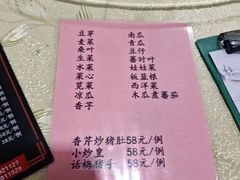 豆芽 南瓜
麦菜 青瓜
桑叶 豆仔
生菜 蕃时叶
水菜 娃娃菜
菜心 板蓝根
苋菜 西洋菜
凉瓜 木瓜煮蕃茄
香芋
香芹炒猪肚58元/例
小炒皇 58元/例
话梅猪手 58元/例